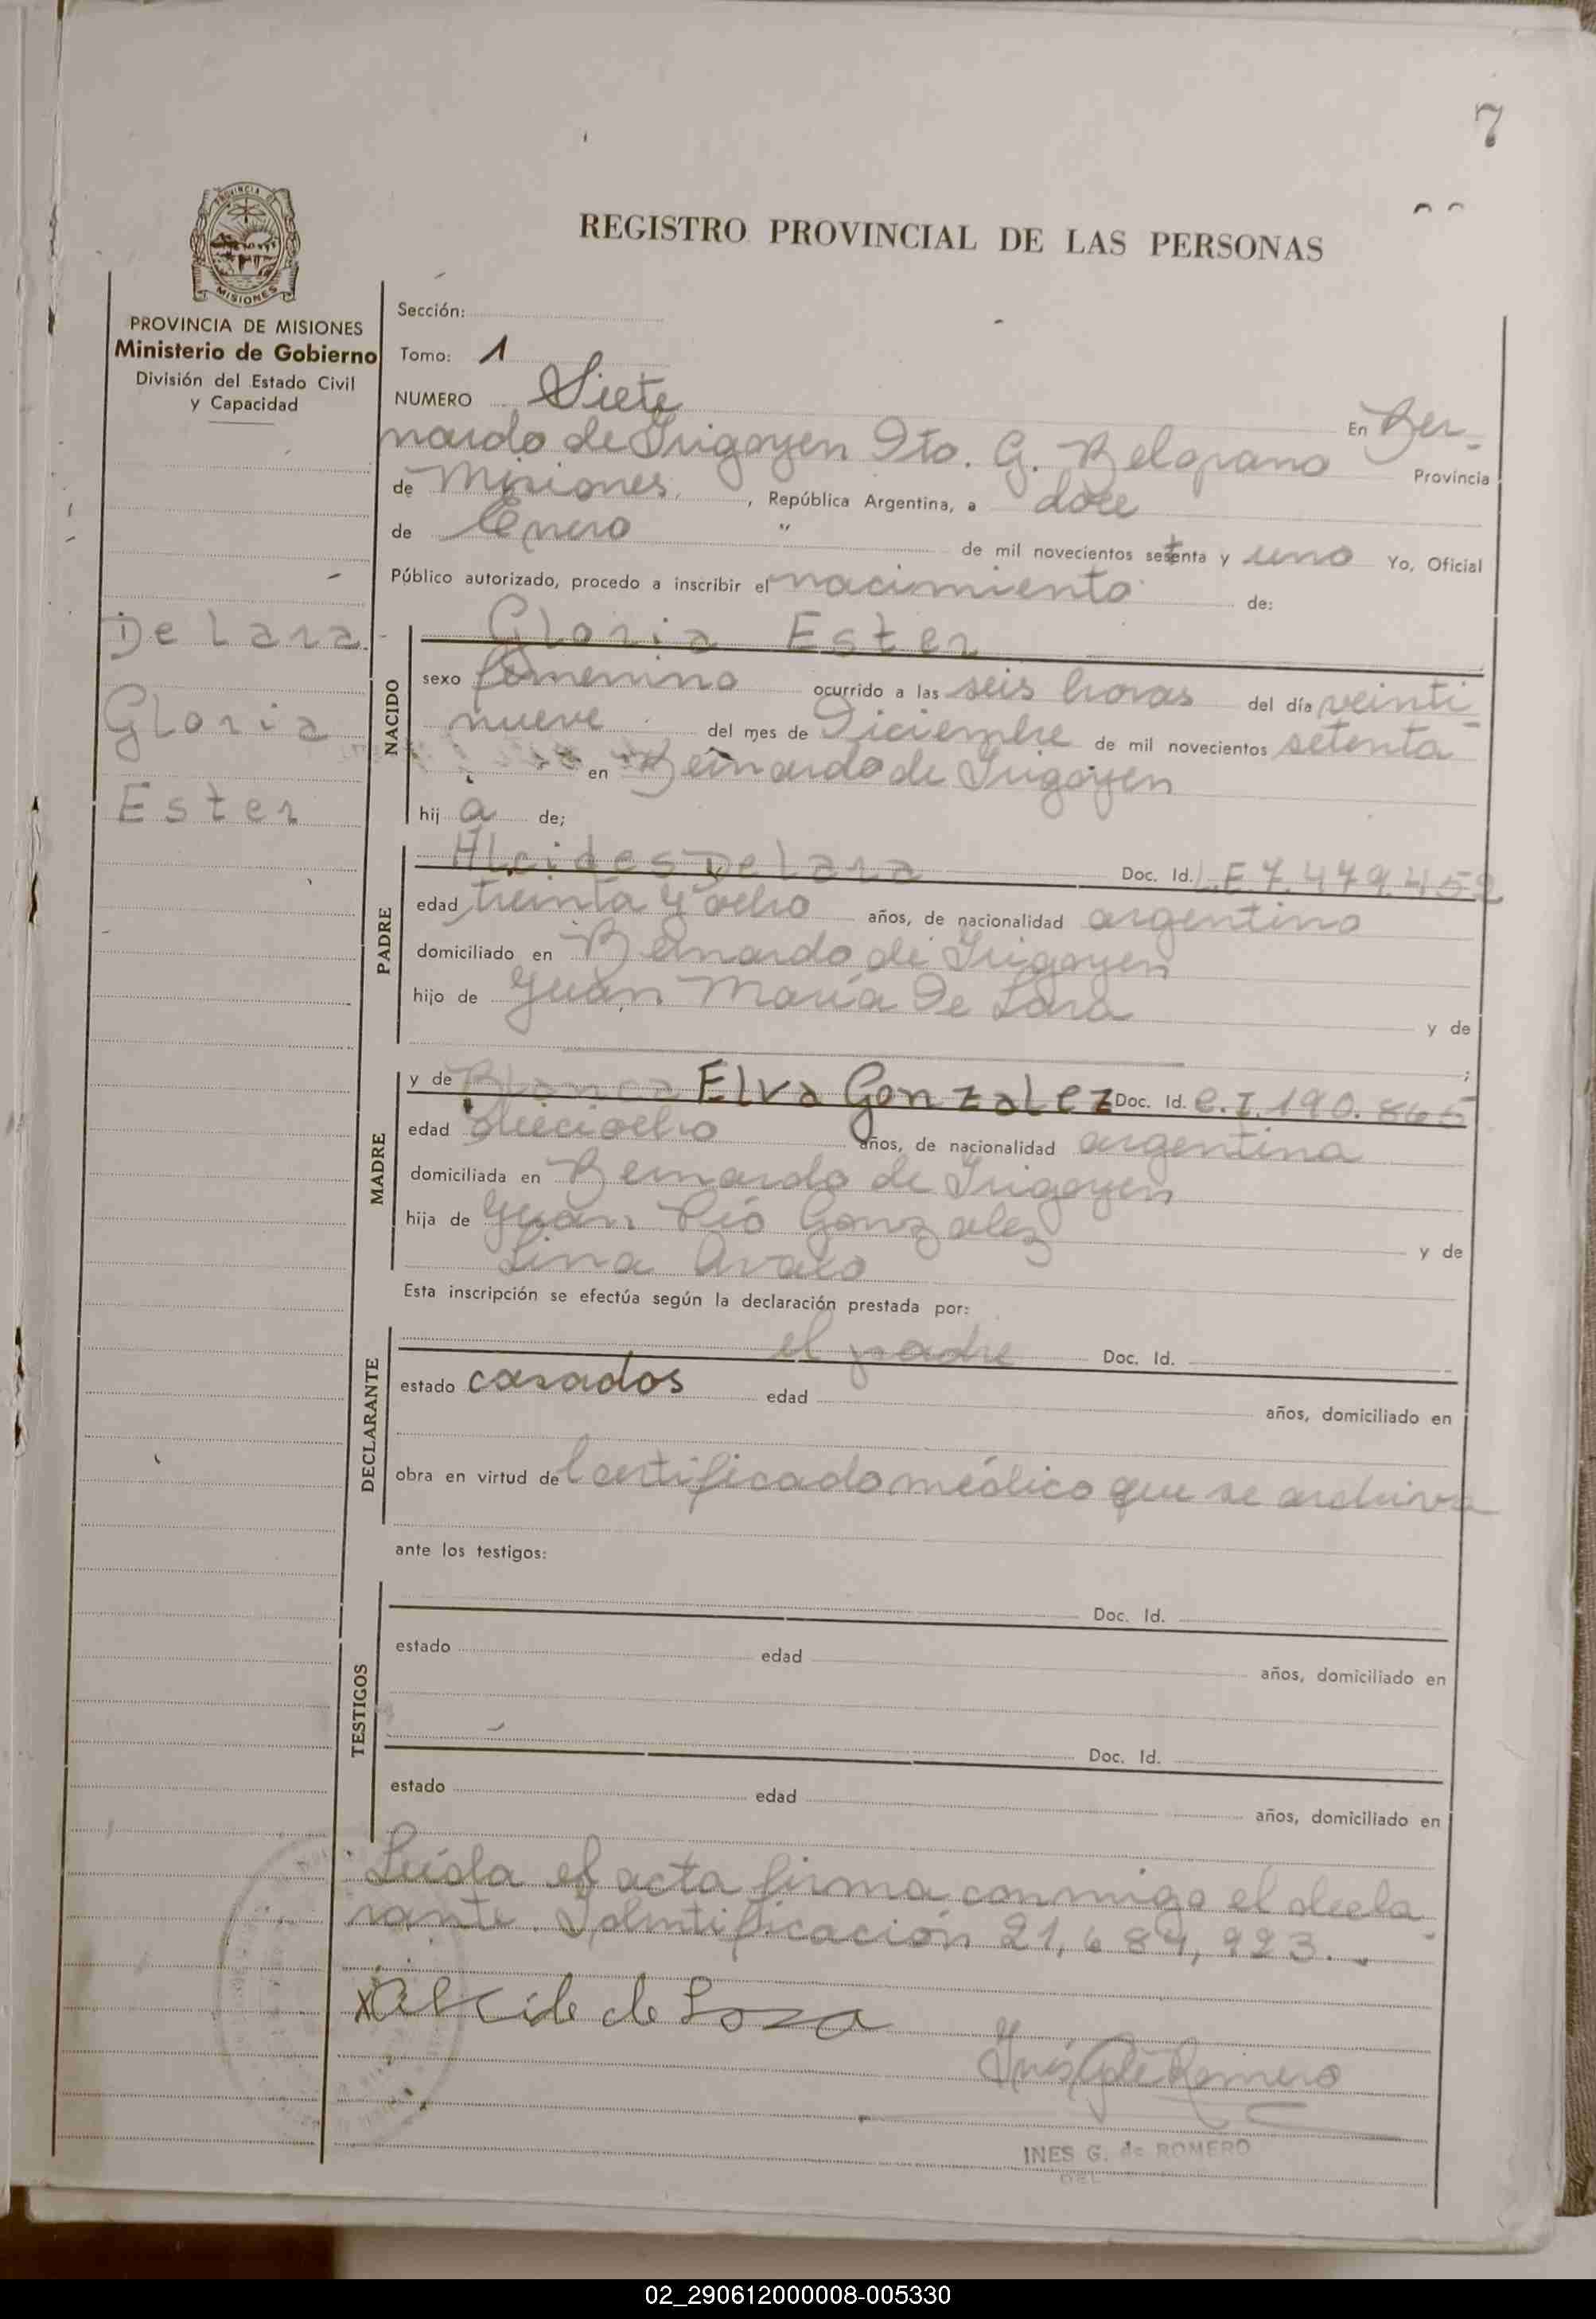 7
PROVINCIA DE
MISIONES
REGISTRO PROVINCIAL DE LAS PERSONAS
PROVINCIA DE MISIONES
Ministerio de Gobierno
División del Estado Civil
y Capacidad
Sección:
Tomo: 1
NUMERO Siete
En Ber-
nardo de Irigoyen Dto. G. Belgrano Provincia
de Misiones, República Argentina, a doce
de Enero " de mil novecientos setenta y uno Yo, Oficial
Público autorizado, procedo a inscribir el nacimiento de:
De Lara.-
Gloria
Ester
NACIDO
Gloria Ester
sexo femenino ocurrido a las seis horas del día veinti-
nueve del mes de Diciembre de mil novecientos setenta
en Bernardo de Irigoyen
hij a de;
PADRE
Alcides De Lara Doc. Id. L.E.7.479.452
edad treinta y ocho años, de nacionalidad argentino
domiciliado en Bernardo de Irigoyen
hijo de Juan María De Lara y de
;
MADRE
y de Blanca Elva Gonzalez Doc. Id. C.I.190.865
edad dieciocho años, de nacionalidad argentina
domiciliada en Bernardo de Irigoyen
hija de Juan Pío Gonzalez y de
Lina
Esta inscripción se efectúa según la declaración prestada por:
DECLARANTE
el padre Doc. Id.
estado casados edad años, domiciliado en
obra en virtud del certificado médico que se archiva
ante los testigos:
TESTIGOS
Doc. Id.
estado edad años, domiciliado en
Doc. Id.
estado edad años, domiciliado en
Leída el acta firma conmigo el decla-
rante. Identificación 21,684,923.-
x Alcide de Lara
INES G. de ROMERO
DEL
02_290612000008-005330